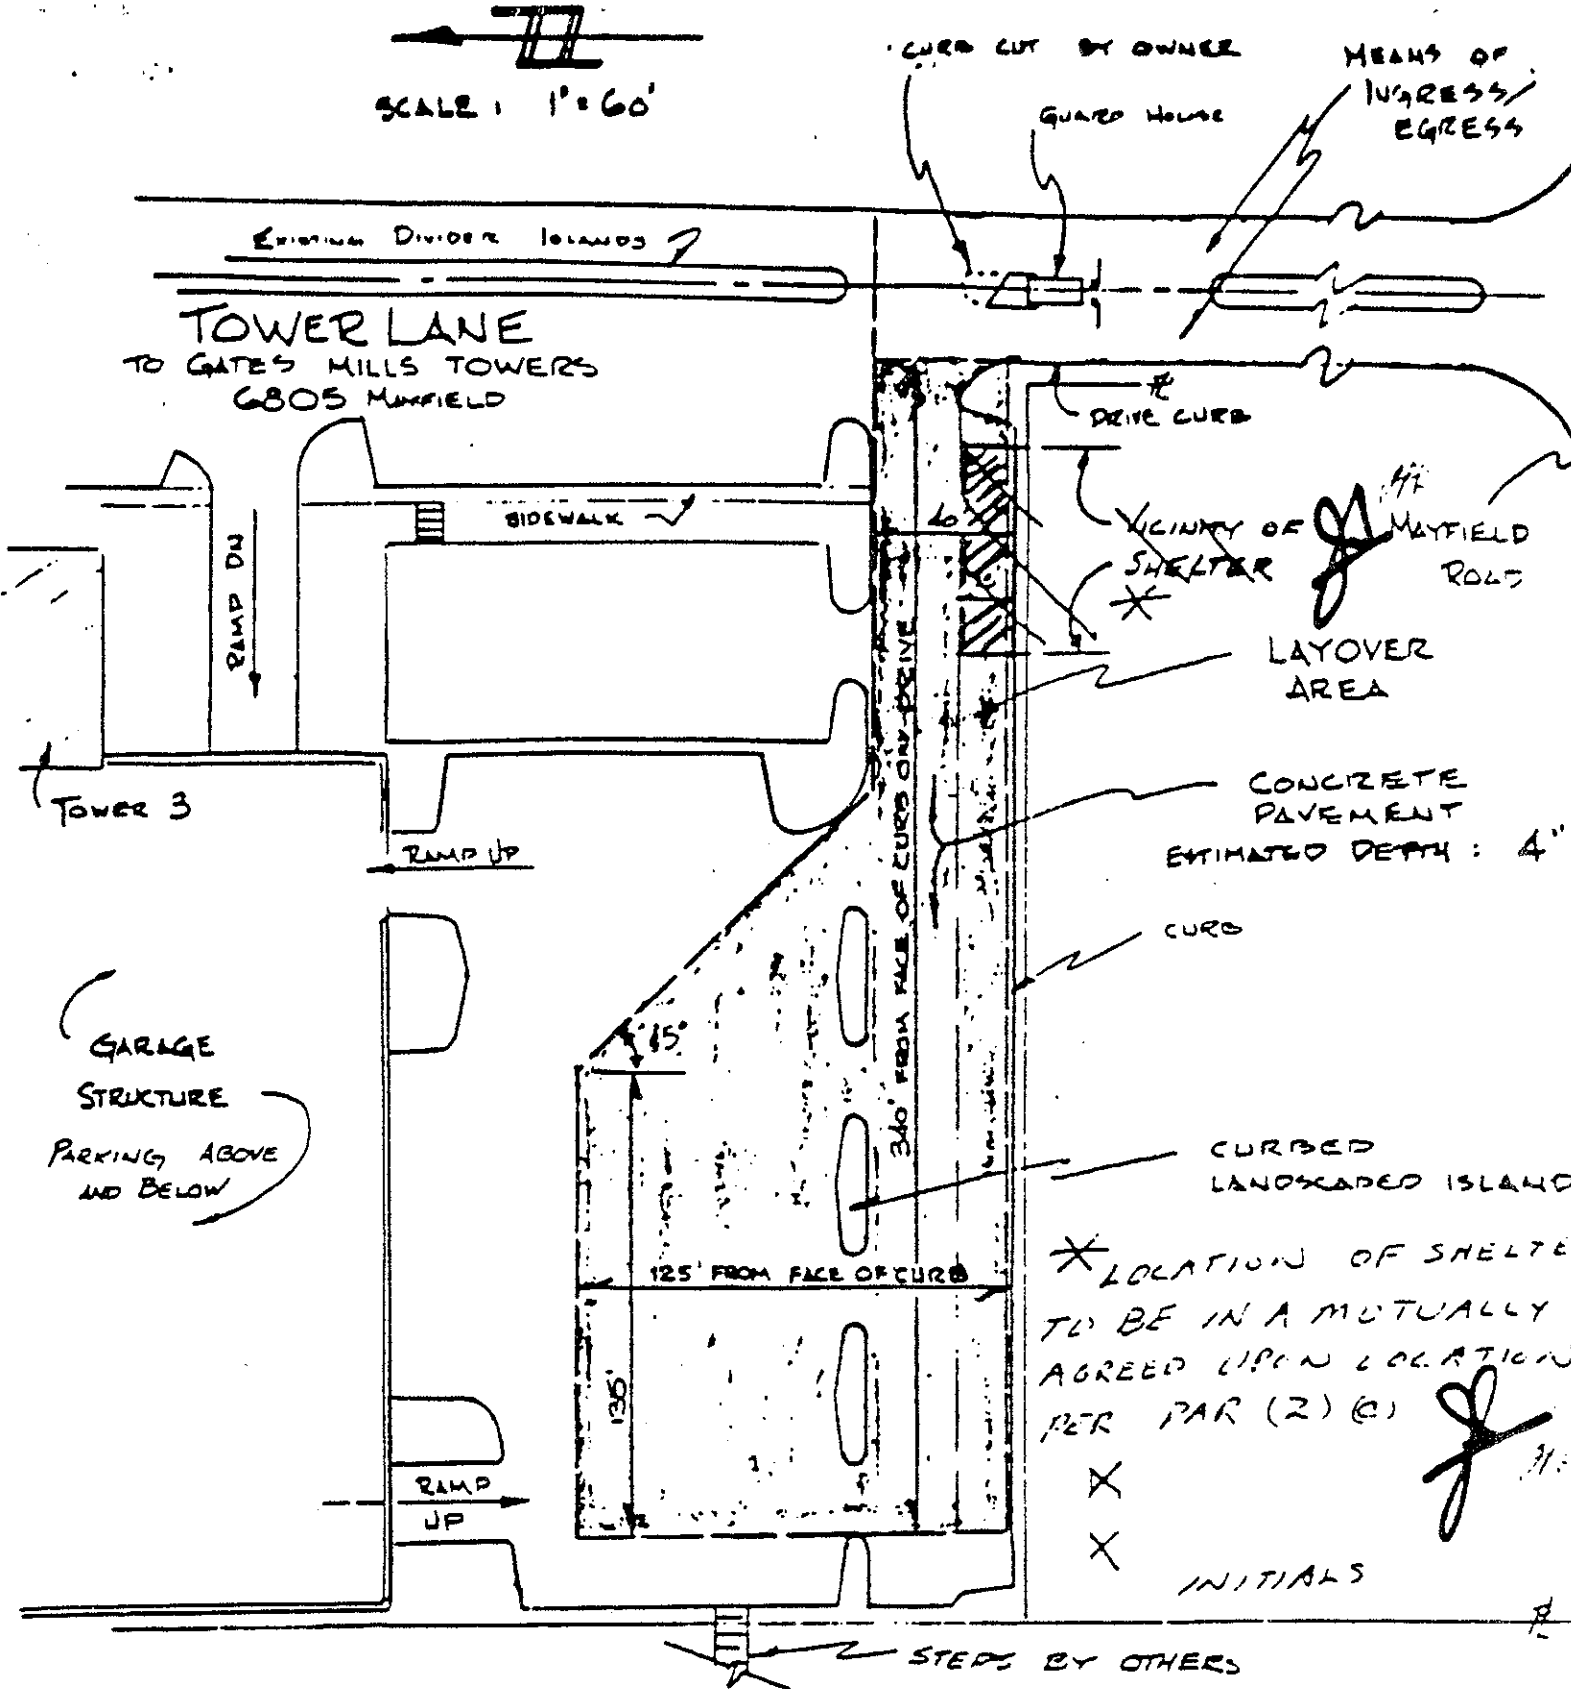 N
SCALE: 1" = 60'
CURB CUT BY OWNER
GUARD HOUSE
MEANS OF
INGRESS/
EGRESS
EXISTING DIVIDER ISLANDS
TOWER LANE
TO GATES MILLS TOWERS
6805 MAYFIELD
DRIVE CURB
SIDEWALK
RAMP DN
VICINITY OF
SHELTER
*
MAYFIELD
ROAD
LAYOVER
AREA
TOWER 3
CONCRETE
PAVEMENT
ESTIMATED DEPTH: 4"
RAMP UP
340' FROM FACE OF CURB ON DRIVE
CURB
GARAGE
STRUCTURE
PARKING ABOVE
AND BELOW
45°
CURBED
LANDSCAPED ISLAND
125' FROM FACE OF CURB
135'
* LOCATION OF SHELTE
TO BE IN A MUTUALLY
AGREED UPON LOCATION
PER PAR (2)
RAMP
UP
X
X
INITIALS
STEPS BY OTHERS